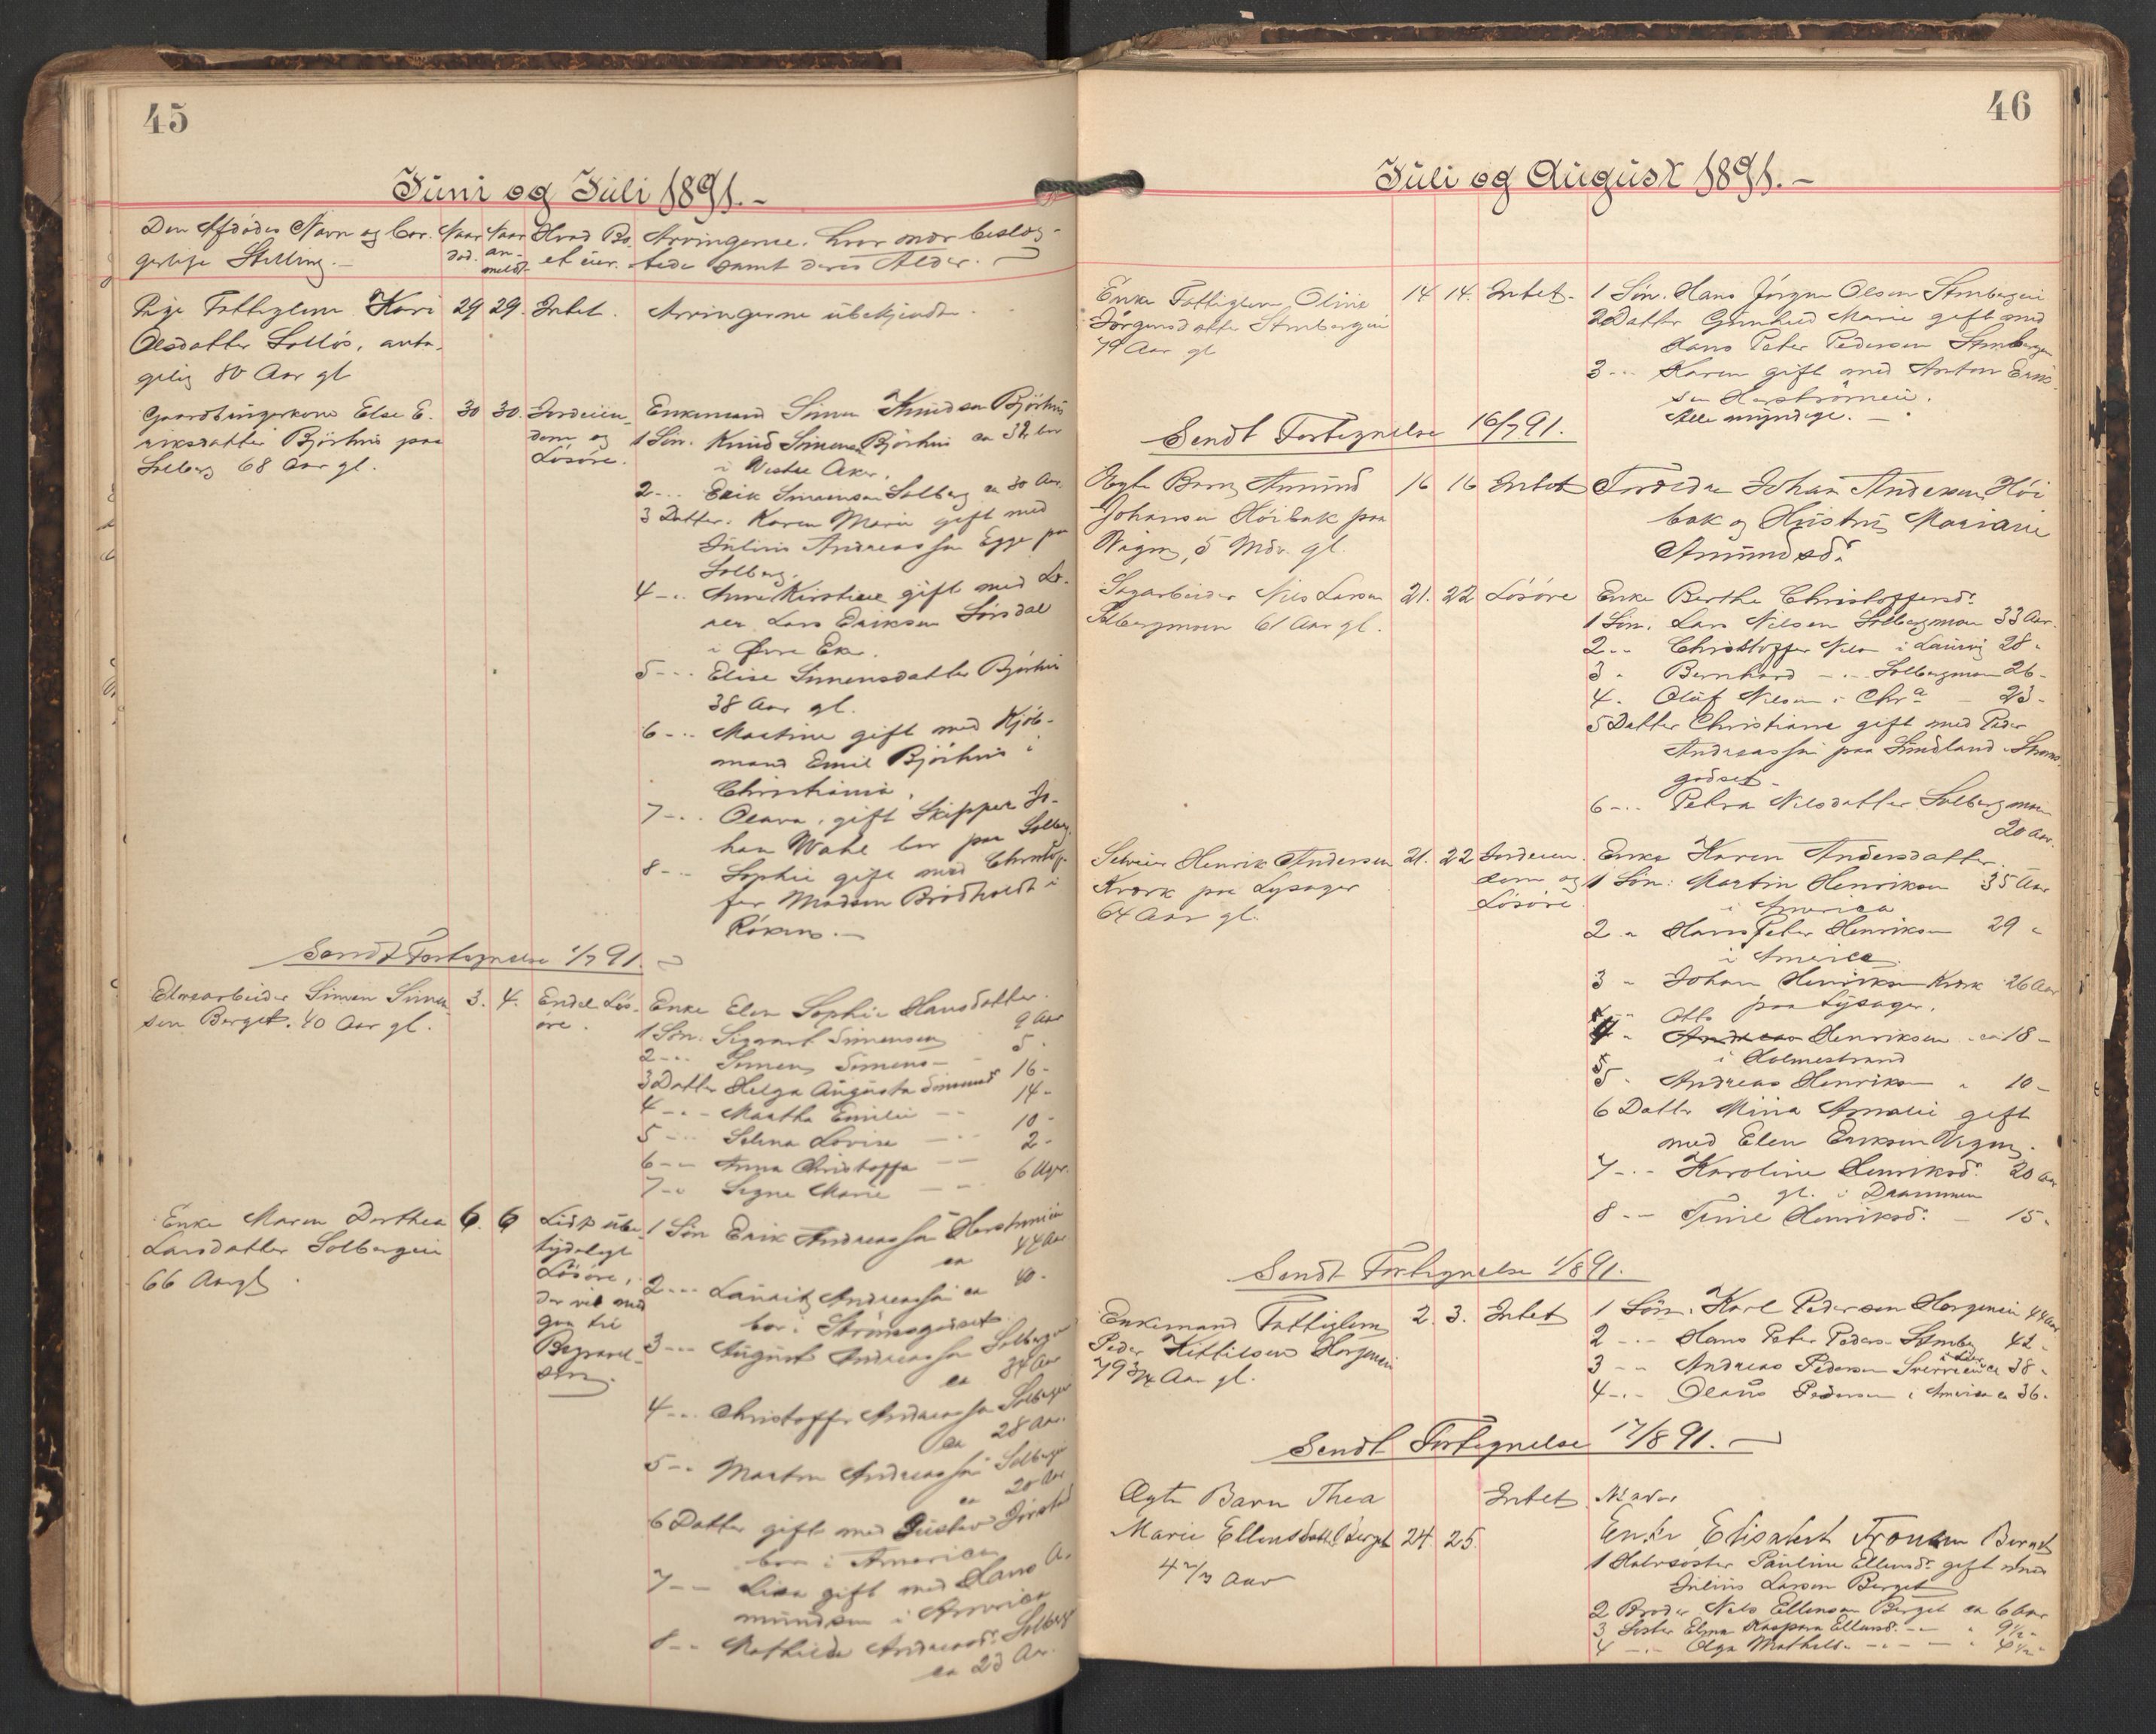 45
Juni og Juli 1891.-
Den Afdødes Navn og bor. Naar Naar Hvad Bo- Arvingerne, hvor nær beslæg-
gerlige Stilling.- død. an- et eier. tede samt deres Alder.
meldt
Pige Fattiglem Kari 29 29. Intet. Arvingerne ubekjendte.
Olsdatter Solløs, anta-
gelig 80 Aar gl
Gaardbrugerkone Else E. 30 30. Jordeien- Enkemand Simen Knudsen Björhus
riksdatter Björhus paa dom og 1 Søn. Knud Simensen Björhus ca 32 bor
Solberg 68 Aar gl. Lösöre. i Vestre Aker.
2 - .. Erik Simensen Solberg ca 30 Aar.
3 Datter. Karen Marie gift med
Julius Andreassen Egge paa
Solberg.
4 - .. Anne Kirstine gift med Læ-
rer Lars Eriksen Sörsdal
i Øvre Eker.
5 - .. Elise Simensdatter Björhus
38 Aar gl.
6 - .. Martine gift med Kjöb-
mand Emil Björhus i
Christiania.
7 - .. Olava, gift Skipper Jo-
han Wahl bor paa Solberg.
8 - .. Sophie gift med Christof-
fer Madsen Brödholdt i
Röken.-
Sendt Fortegnelse 1/7 91.
Elvearbeider Simen Simen- 3. 4. Endel Lös- Enke Elen Sophie Hansdatter.
sen Berget. 40 Aar gl. öre. 1 Søn. Sigvart Simensen 9 Aar
2 - .. Simen Simens- 5 -
3 Datter Helga Augusta Simensdr 16 -
4 - .. Martha Emilie - .. 14 -
5 - .. Selma Lovise - .. 10 -
6 - .. Anna Christoffa - .. 2 -
7 - .. Signe Marie - .. 6 Uger.
Enke Maren Dorthea 6. 6 Lidt ube- 1 Søn Erik Andreassen
Larsdatter Solbergeie tydeligt ca 44 Aar
66 Aar gl. Lösöre, 2 - .. Lauritz Andreassen ca 40 -
der vil med- bor i Strömsgodset
gaa til 3 - .. August Andreassen Solbergeie
Begravel- ca 34 Aar
sen. 4 - .. Christoffer Andreassen Solbergeie
ca 28 Aar.
5 - .. Morten Andreassen Solbergeie
ca 20 Aar
6 Datter gift med Gustav
bor i America
7 - .. Lisa gift med Hans A-
mundsen i America
8 - .. Mathilde Andreasdr Solbergeie
ca 23 Aar.
46
Juli og August 1891.-
Enke Fattiglem Oline 14 14. Intet. 1 Søn. Hans Jörgen Olsen Stenbergeie
Jörgensdatter Stenbergeie 2 Datter Gunhild Marie gift med
79 Aar gl Hans Peter Pedersen Stenbergeie
3 - .. Karen gift med Anton
sen
Alle myndige.
Sendt Fortegnelse 16/7 91.
Ægte Barn Amund 16 16 Intet Forældre Johan Andersen Höi
Johansen Höibak paa bak og Hustru Mariane
5 Mdr. gl. Amundsdr
Sagarbeider Nils Larsen 21. 22 Lösöre Enke Berthe Christoffersdr
Solbergmoen 61 Aar gl. 1 Søn. Lars Nilsen Solbergmoen 33 Aar.
2 .. Christoffer Nilsen i Laurvig 28 -
3 - Bernhard - .. Solbergmoen 26 -
4 - Oluf Nilsen i Chr.a - 23 -
5 Datter Christiane gift med Peder
Andreassen paa Sundland i Strøms-
godset
6 - .. Petra Nilsdatter Solbergmoen
20 Aar.
Selveier Henrik Andersen 21. 22 Jordeien- Enke Karen Andersdatter.
Kværk paa Lysager dom og 1 Søn: Martin Henriksen 35 Aar
64 Aar gl. Lösöre i America
2 - Hans Peter Henriksen 29 -
i America.
3 - Johan Henriksen Kværk 26 Aar
paa Lysager.
Otto
4 - Andreas Henriksen - ca 18 -
i Holmestrand
5 - Andreas Henriksen - 10 -
6 Datter Mina Amalie gift
med Elen Eriksen
7 - .. Karoline Henriksdr. 20 Aar
gl. i Drammen
8 - .. Henriksdr. - 15 -
Sendt Fortegnelse 1/8 91.
Enkemand Fattiglem 2. 3. Intet 1 Søn. Karl Pedersen Horgeneie 44 Aar
Peder Kittilsen Horgeneie 2 - .. Hans Peter Peders- Stenberg 42 -
79 3/4 Aar gl. 3 - .. Andreas Pedersen i Lier ca 38 -
4 - .. Olaus Pedersen i America ca 36 -
Sendt Fortegnelse 17/8 91.-
Ægte Barn Thea Intet. Moder
Marie Ellensdatt. Berget 24. 25. Enke Elisabeth Berget
4 2/3 Aar 1 Halvsøster Pauline Ellensdr gift med
Julius Larsen Berget
2 Broder Nils Ellensen Berget ca 6 Aar
3 Søster Elma Kaspara Ellensd. - .. - 9 1/2 -
4 - .. Olga Mathild. - .. - - 4 1/2 -